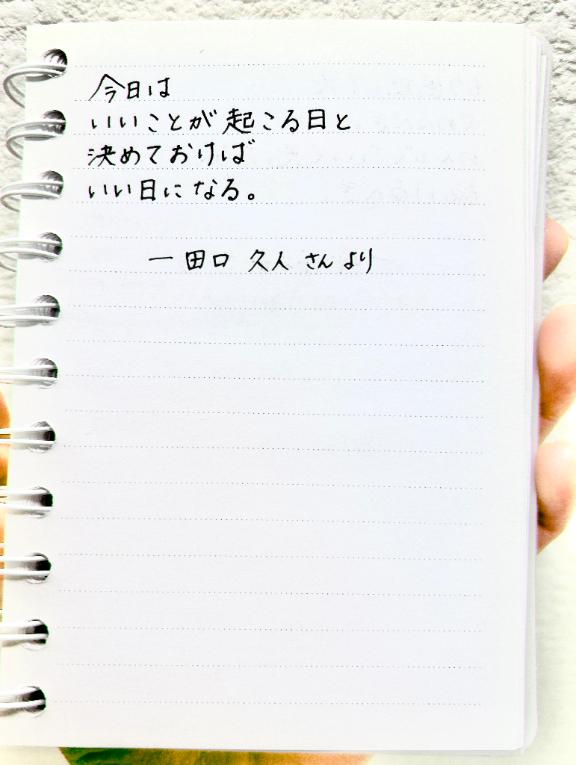 今日は
いいことが起こる日と
決めておけば
いい日になる。
― 田口 久人 さん より